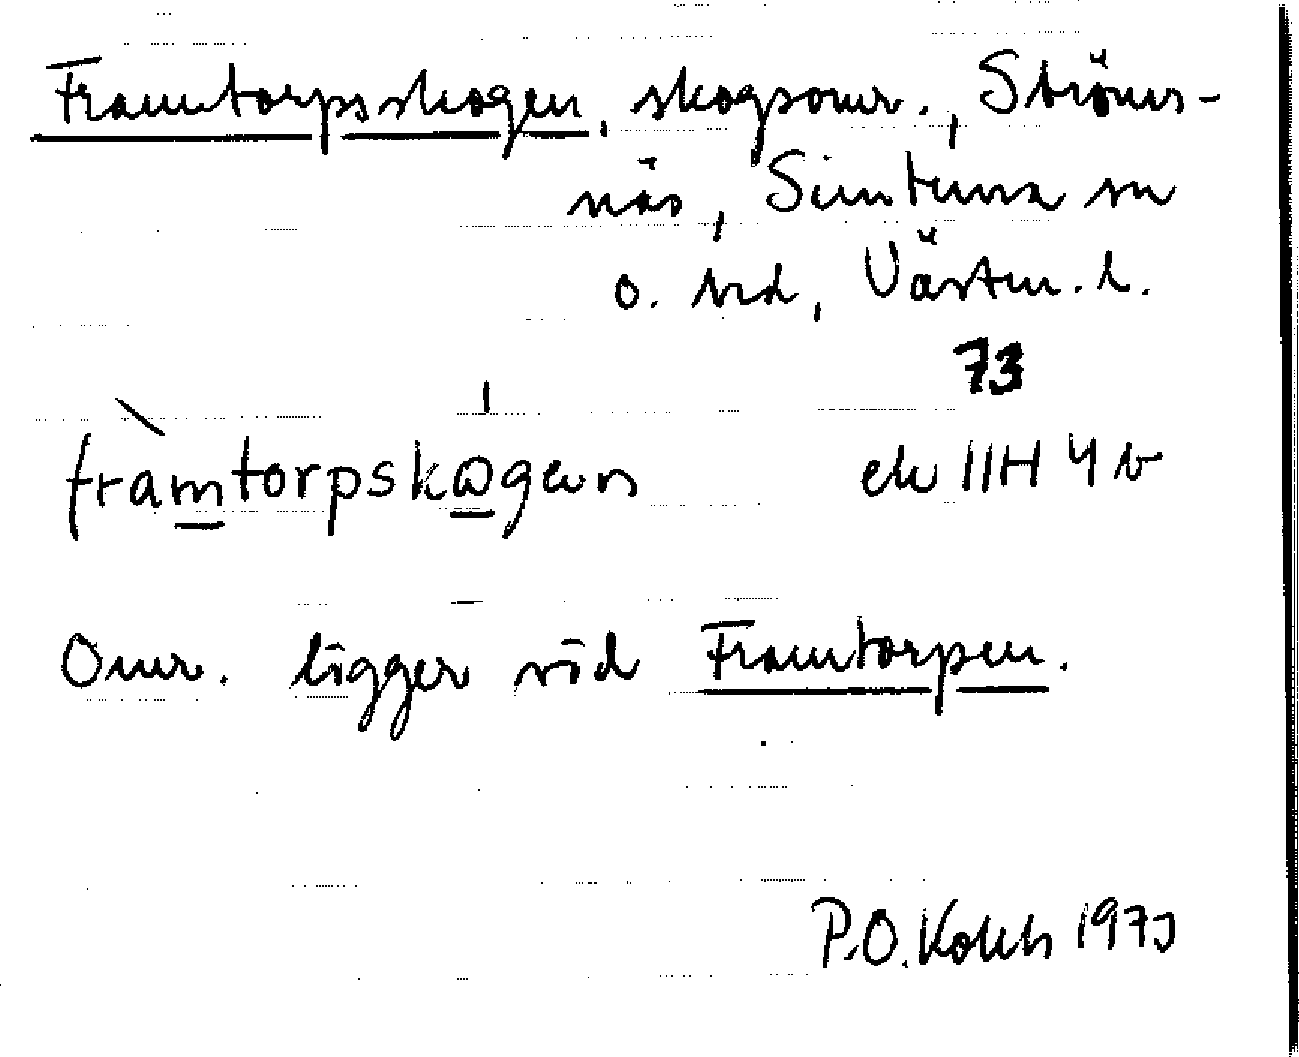 Framtorpsskogen, skogsomr., Ströms-
näs, Simtuna sn
o. hd, Västm. l.
73
fràmtorpskωgæn ek 11H 4 b
Omr. ligger vid Framtorpen.
P.O. Kokk 1973